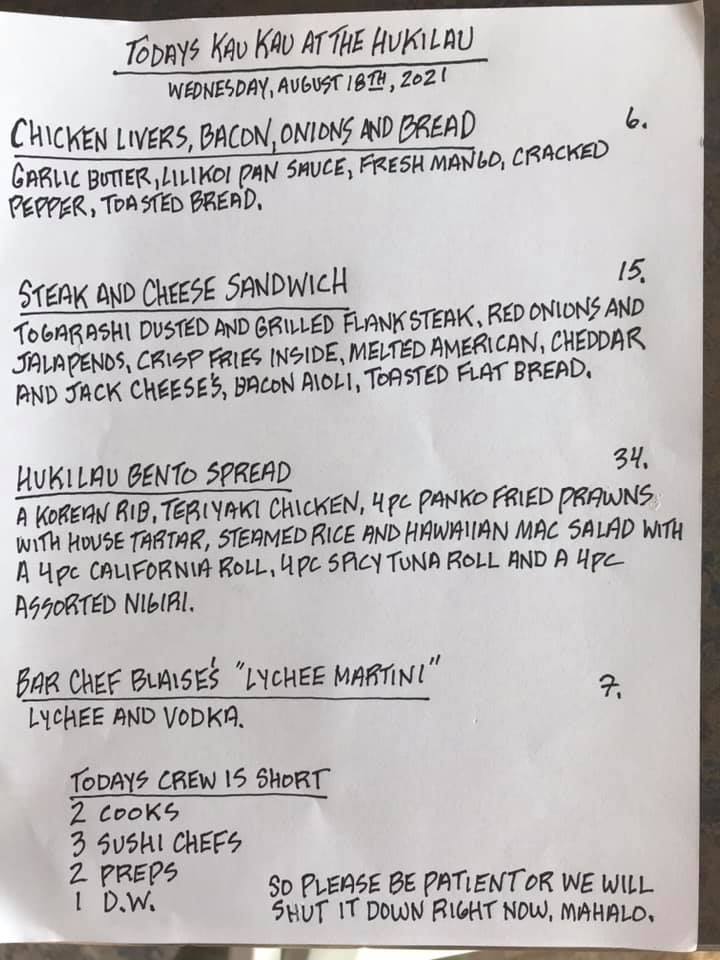 TODAYS KAU KAU AT THE HUKILAU
WEDNESDAY, AUGUST 18TH, 2021
CHICKEN LIVERS, BACON, ONIONS AND BREAD 6.
GARLIC BUTTER, LILIKOI PAN SAUCE, FRESH MANGO, CRACKED
PEPPER, TOASTED BREAD.
STEAK AND CHEESE SANDWICH 15.
TOGARASHI DUSTED AND GRILLED FLANK STEAK, RED ONIONS AND
JALAPENOS, CRISP FRIES INSIDE, MELTED AMERICAN, CHEDDAR
AND JACK CHEESE'S, BACON AIOLI, TOASTED FLAT BREAD.
HUKILAU BENTO SPREAD 34.
A KOREAN RIB, TERIYAKI CHICKEN, 4PC PANKO FRIED PRAWNS
WITH HOUSE TARTAR, STEAMED RICE AND HAWAIIAN MAC SALAD WITH
A 4PC CALIFORNIA ROLL, 4PC SPICY TUNA ROLL AND A 4PC
ASSORTED NIGIRI.
BAR CHEF BLAISE'S "LYCHEE MARTINI" 7.
LYCHEE AND VODKA.
TODAYS CREW IS SHORT
2 COOKS
3 SUSHI CHEFS
2 PREPS
1 D.W.
SO PLEASE BE PATIENT OR WE WILL
SHUT IT DOWN RIGHT NOW, MAHALO.